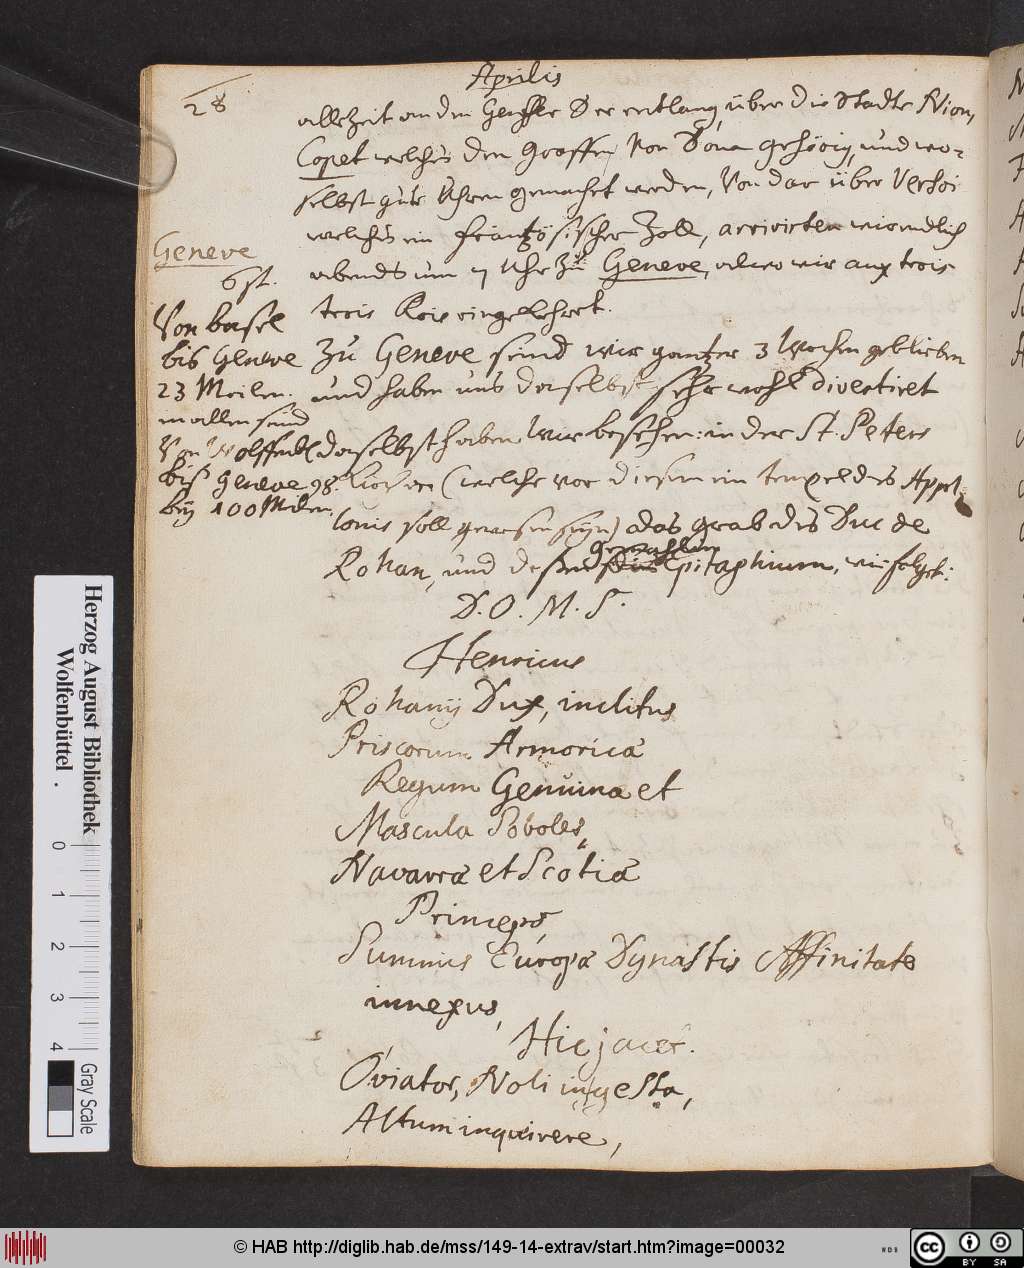 Aprilis
28
allezeit an den Genffer See entlang, über die Stadte Nion,
Copet welches den Graffen von Dona gehörig, und wo-
selbst gute Uhren gemacht werden, Von dar über Versoi
welches ein frantzösischer Zoll, arrivirten wir endlich
abends um 7 Uhr zu Geneve, alwo wir aux trois
trois Rois eingekehret.
Geneve
6 st.
Von basel
bis Geneve
23 Meilen.
in allen seind
Von Wolffenb
bis Geneve 98.
beÿ 100 Meilen.
Zu Geneve seind wir gantzer 3 Wochen geblieben
und haben uns daselbst sehr wohl divertiret
daselbst haben wir besehen: in der St. Peters
Kirchen (welche vor diesem ein tempel des Appol-
lonis soll gewesen seÿn) das grab des Duc de
Rohan, und dessen Gemahlin Epitaphium, wie folget:
D. O. M. S.
Henricus
Rohanÿ Dux, inclitus
Priscorum Armorica
Regum Genuina et
Mascula Soboles,
Navarra et Scotia
Princeps,
Summis Europa Dynastis Affinitate
innexus,
Hic jacet.
O viator, Noli ingesta,
Altum inquirere,
Herzog August Bibliothek
Wolfenbüttel
0 1 2 3 4
Gray Scale
© HAB http://diglib.hab.de/mss/149-14-extrav/start.htm?image=00032
WDB
cc BY SA